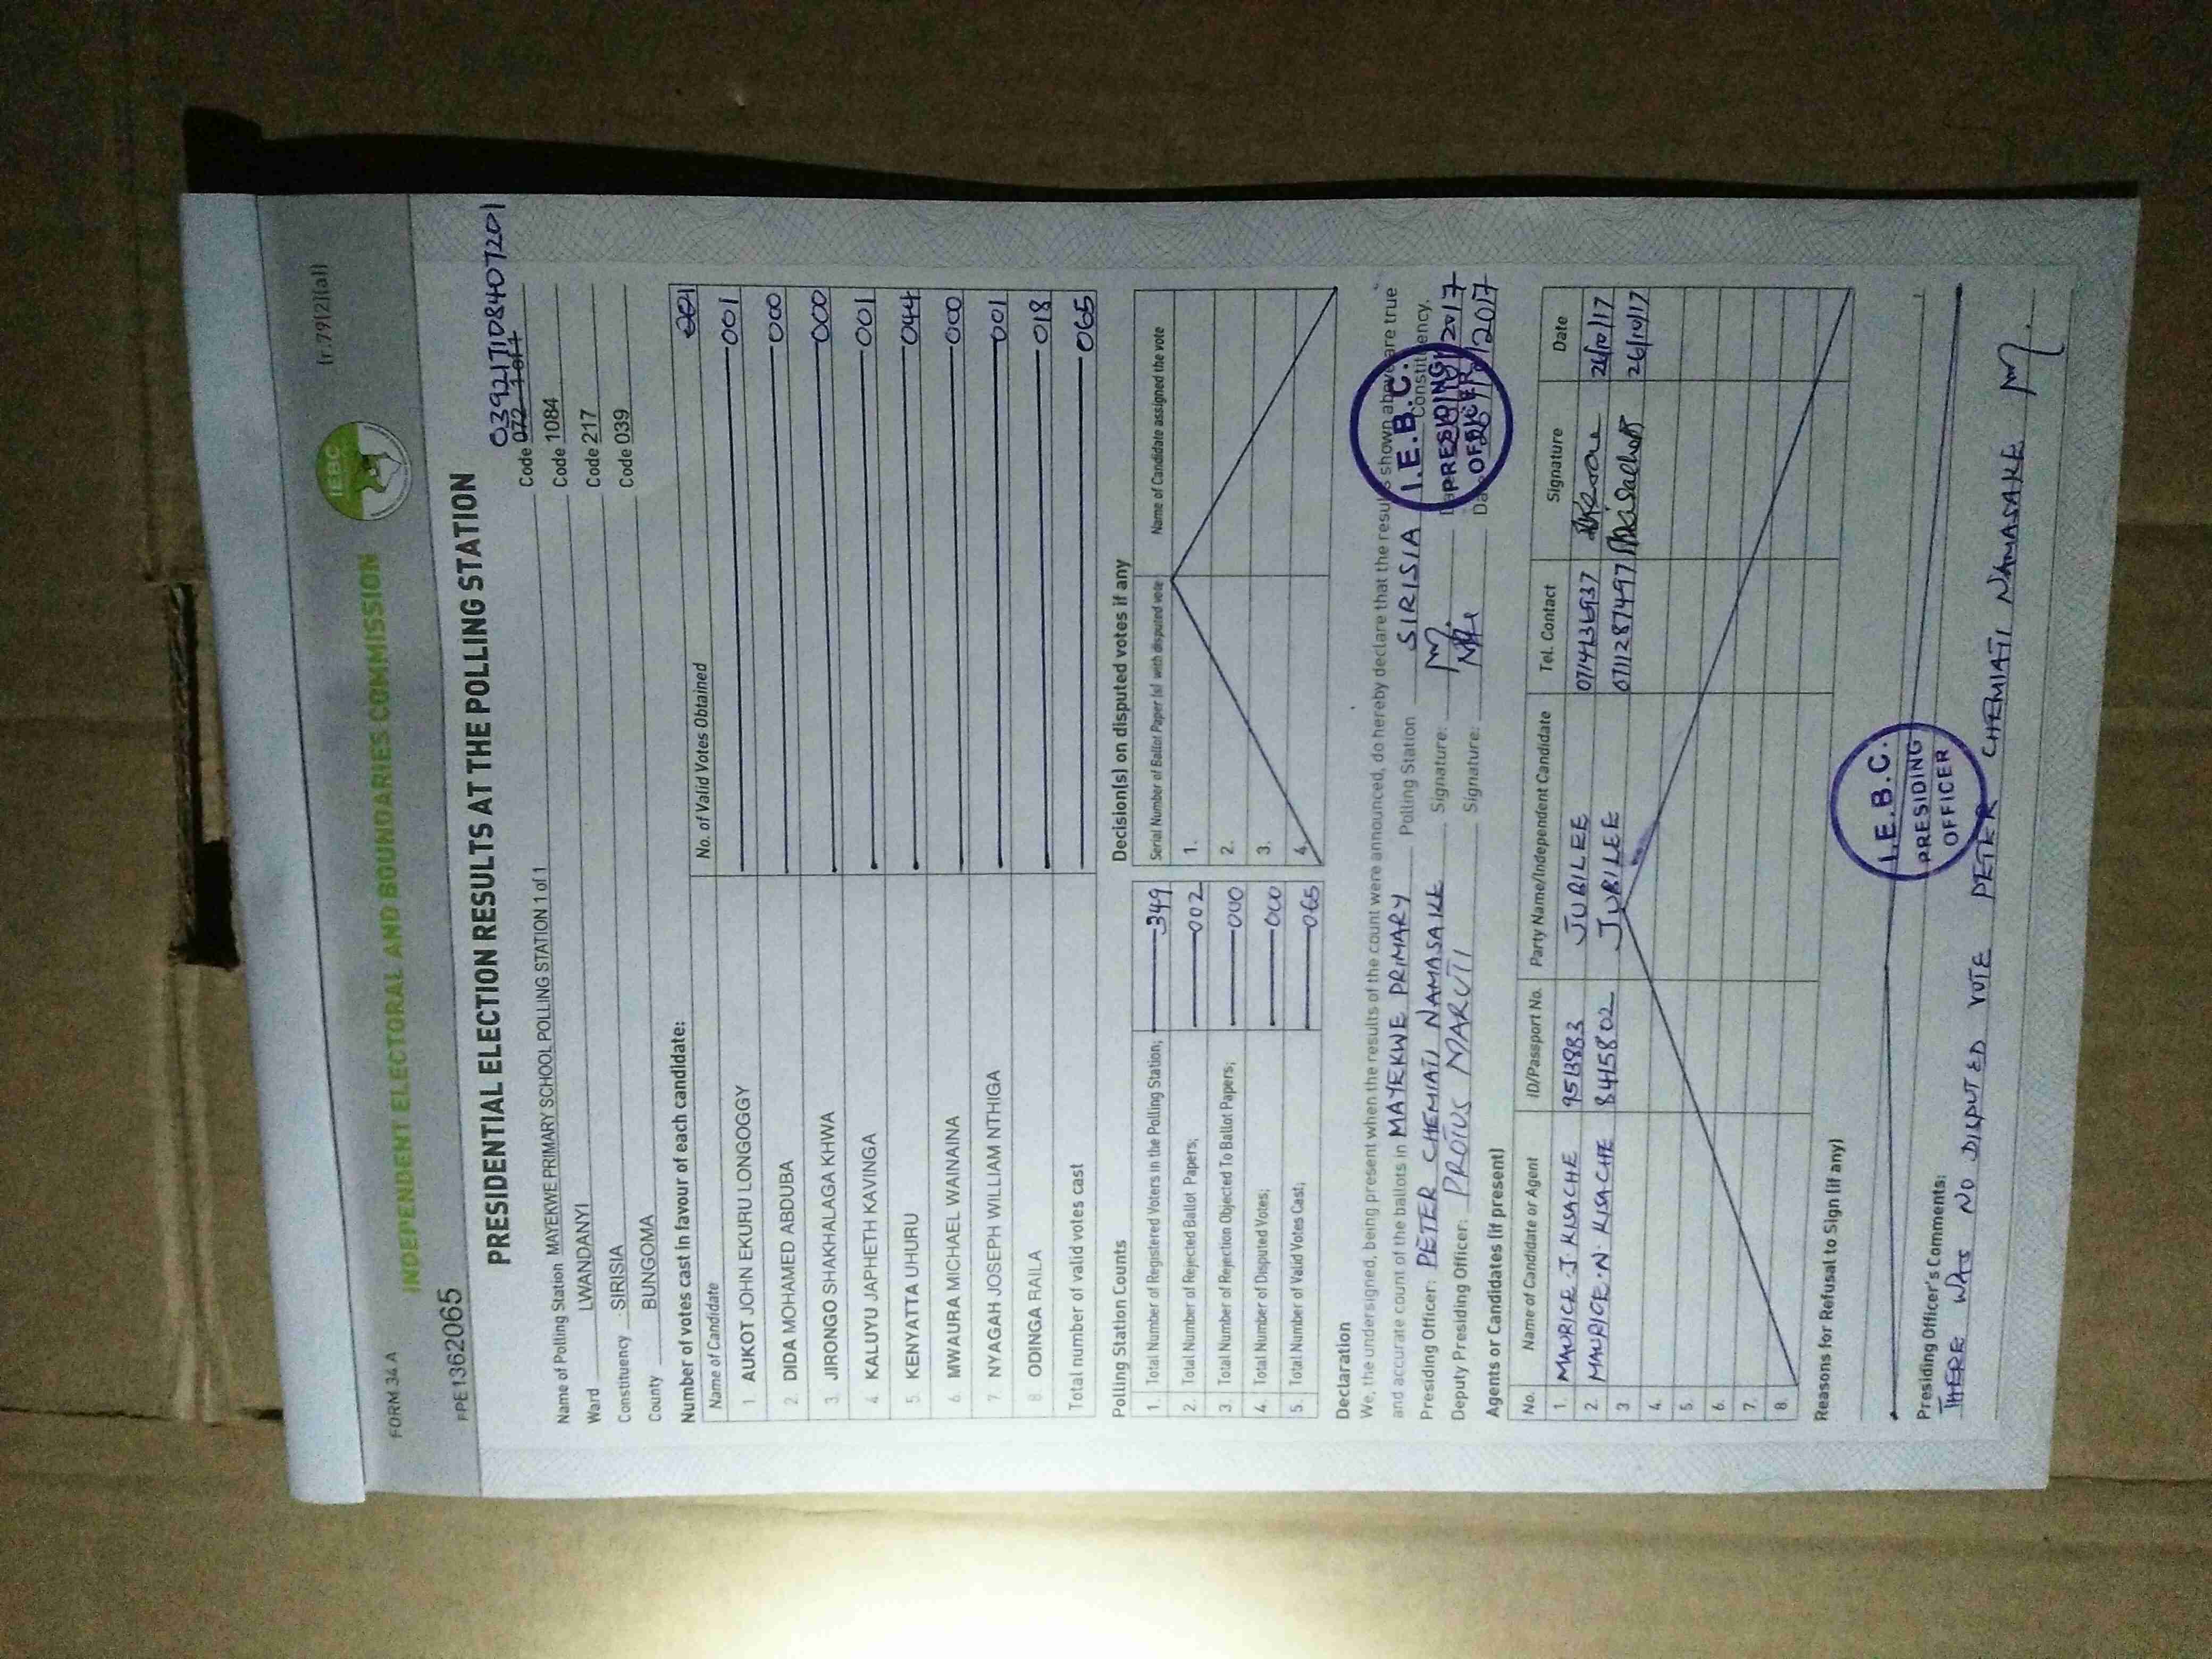 FORM 34 A
(r.79(2)(a))
IEBC
INDEPENDENT ELECTORAL AND BOUNDARIES COMMISSION
PPE1362065
PRESIDENTIAL ELECTION RESULTS AT THE POLLING STATION
Name of Polling Station MAYEKWE PRIMARY SCHOOL POLLING STATION 1 of 1 Code 072 1 of 1
Ward LWANDANYI Code 1084
Constituency SIRISIA Code 217
County BUNGOMA Code 039
Number of votes cast in favour of each candidate:
001
Name of Candidate No. of Valid Votes Obtained
1 AUKOT JOHN EKURU LONGOGGY 001
2. DIDA MOHAMED ABDUBA 000
3. JIRONGO SHAKHALAGA KHWA 000
4 KALUYU JAPHETH KAVINGA 001
5. KENYATTA UHURU 044
6 MWAURA MICHAEL WAINAINA 000
7. NYAGAH JOSEPH WILLIAM NTHIGA 001
8 ODINGA RAILA 018
Total number of valid votes cast 065
Polling Station Counts
1. Total Number of Registered Voters in the Polling Station; 349
2. Total Number of Rejected Ballot Papers; 002
3. Total Number of Rejection Objected To Ballot Papers; 000
4. Total Number of Disputed Votes; 000
5. Total Number of Valid Votes Cast; 065
Decision(s) on disputed votes if any
Serial Number of Ballot Paper (s) with disputed vote Name of Candidate assigned the vote
1.
2.
3.
4.
Declaration
We, the undersigned, being present when the results of the count were announced, do hereby declare that the results shown above are true
and accurate count of the ballots in MAYEKWE PRIMARY Polling Station SIRISIA Constituency.
Presiding Officer: PETER CHEMIATI NAMASAKE Signature: Date 2017
Deputy Presiding Officer: PROTUS MARUTI Signature: Date 2017
I.E.B.C.
PRESIDING
OFFICER
Agents or Candidates (if present)
No. Name of Candidate or Agent ID/Passport No. Party Name/Independent Candidate Tel. Contact Signature Date
1. MAURICE J KISACHE JUBILEE 26/10/17
2. MAURICE N. KISACHE 8415802 JUBILEE 0711287497 26/10/17
3
4.
5.
6.
7.
8.
Reasons for Refusal to Sign (if any)
I.E.B.C.
PRESIDING
OFFICER
Presiding Officer's Comments:
THERE WAS NO DISPUTED VOTE PETER CHEMIATI NAMASAKE